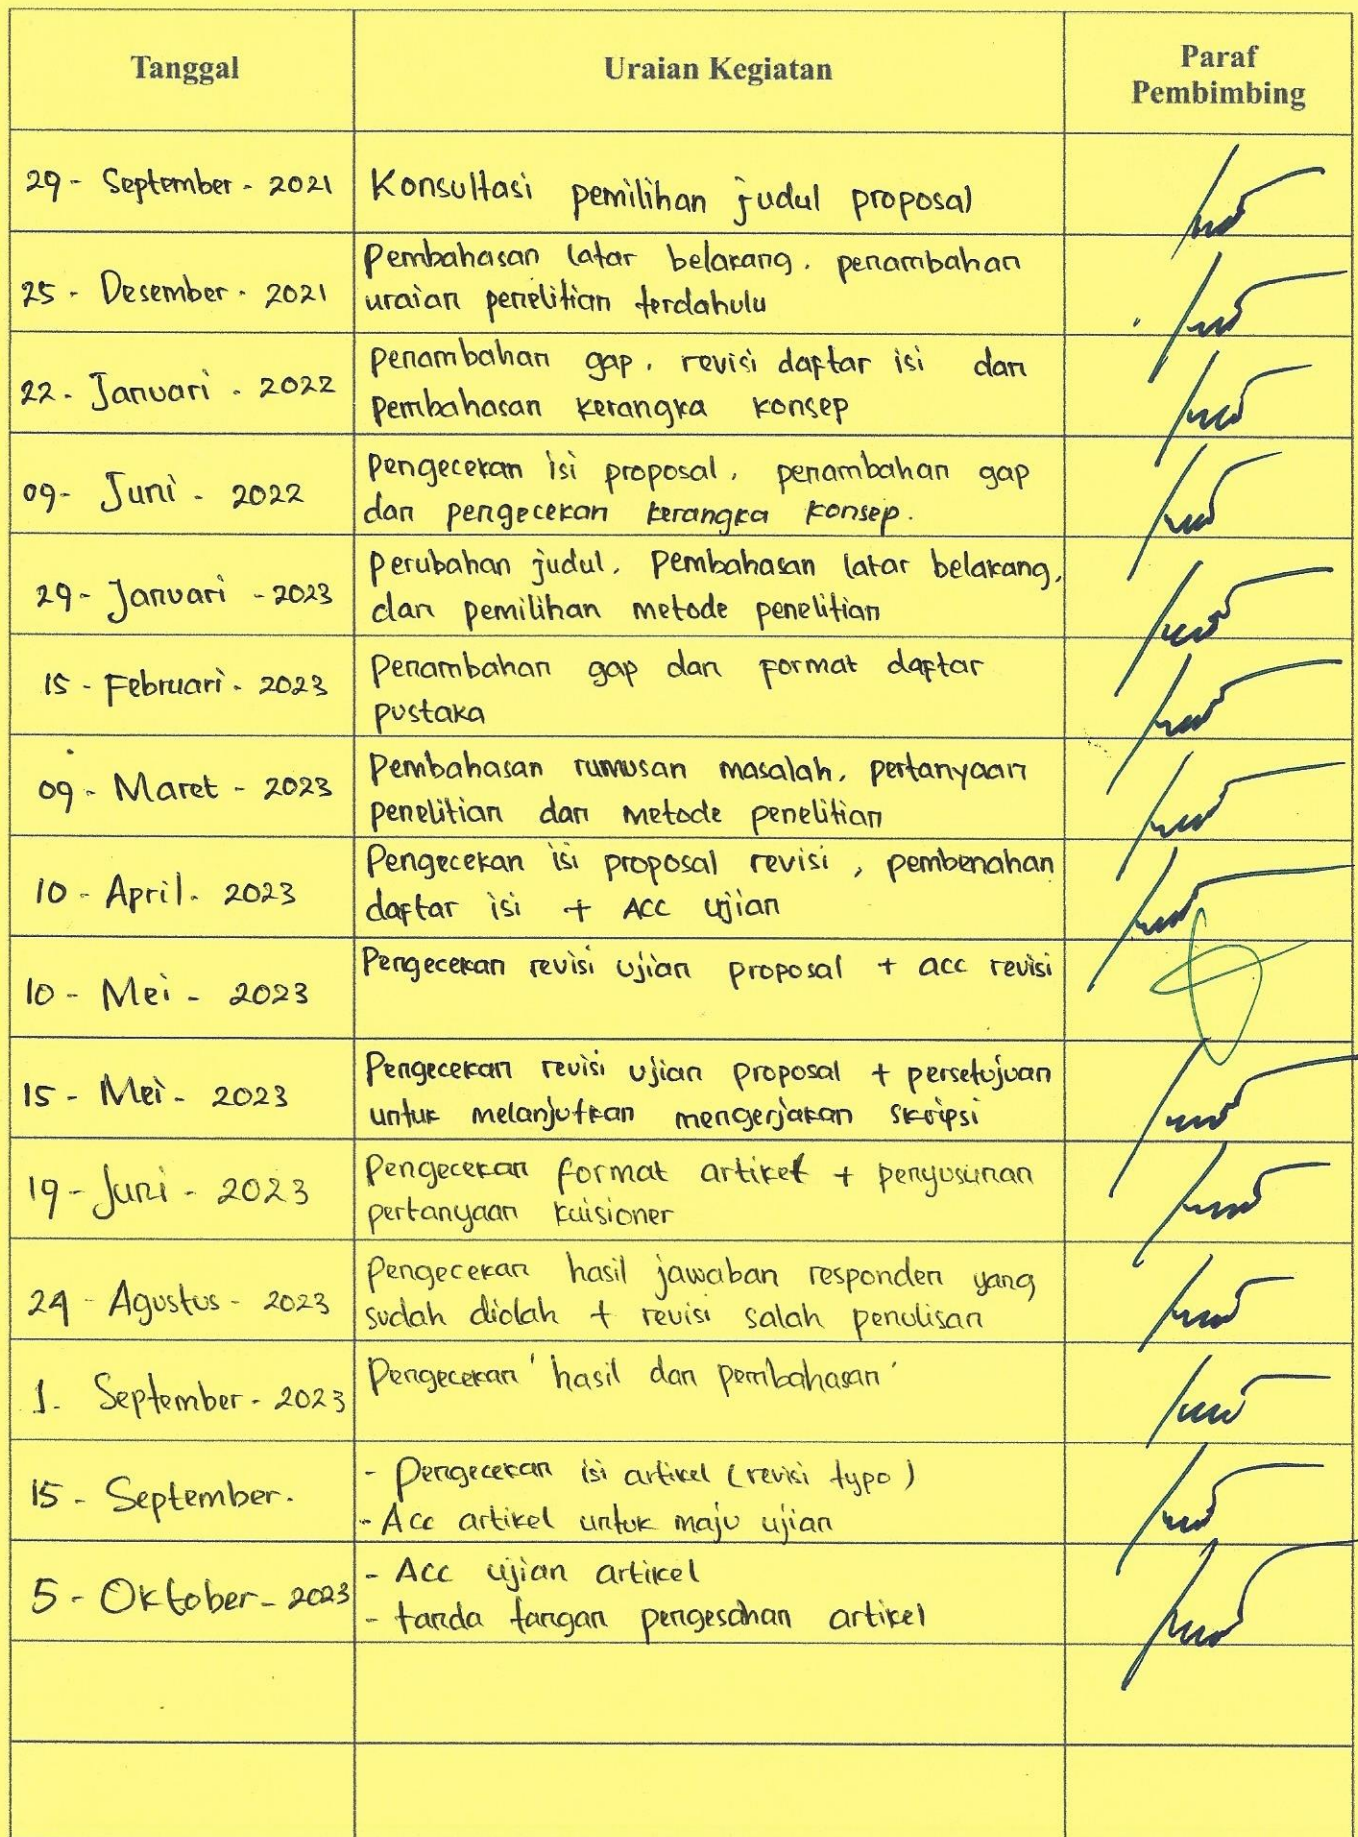 Tanggal
Uraian Kegiatan
Paraf
Pembimbing
29 - September - 2021
Konsultasi pemilihan judul proposal
25 - Desember - 2021
Pembahasan latar belakang, penambahan
uraian penelitian terdahulu
22 - Januari - 2022
Penambahan gap, revisi daftar isi dan
pembahasan kerangka konsep
09 - Juni - 2022
Pengecekan isi proposal, penambahan gap
dan pengecekan kerangka konsep.
29 - Januari - 2023
Perubahan judul, Pembahasan latar belakang,
dan pemilihan metode penelitian
15 - Februari - 2023
Penambahan gap dan format daftar
pustaka
09 - Maret - 2023
Pembahasan rumusan masalah, pertanyaan
penelitian dan metode penelitian
10 - April - 2023
Pengecekan isi proposal revisi, pembenahan
daftar isi + ACC ujian
10 - Mei - 2023
Pengecekan revisi ujian proposal + acc revisi
15 - Mei - 2023
Pengecekan revisi ujian proposal + persetujuan
untuk melanjutkan mengerjakan skripsi
19 - Juni - 2023
Pengecekan format artikel + penyusunan
pertanyaan kuisioner
24 - Agustus - 2023
Pengecekan hasil jawaban responden yang
sudah diolah + revisi salah penulisan
1. September - 2023
Pengecekan 'hasil dan pembahasan'
15 - September.
- Pengecekan isi artikel (revisi typo)
- Acc artikel untuk maju ujian
5 - Oktober - 2023
- Acc ujian artikel
- tanda tangan pengesahan artikel